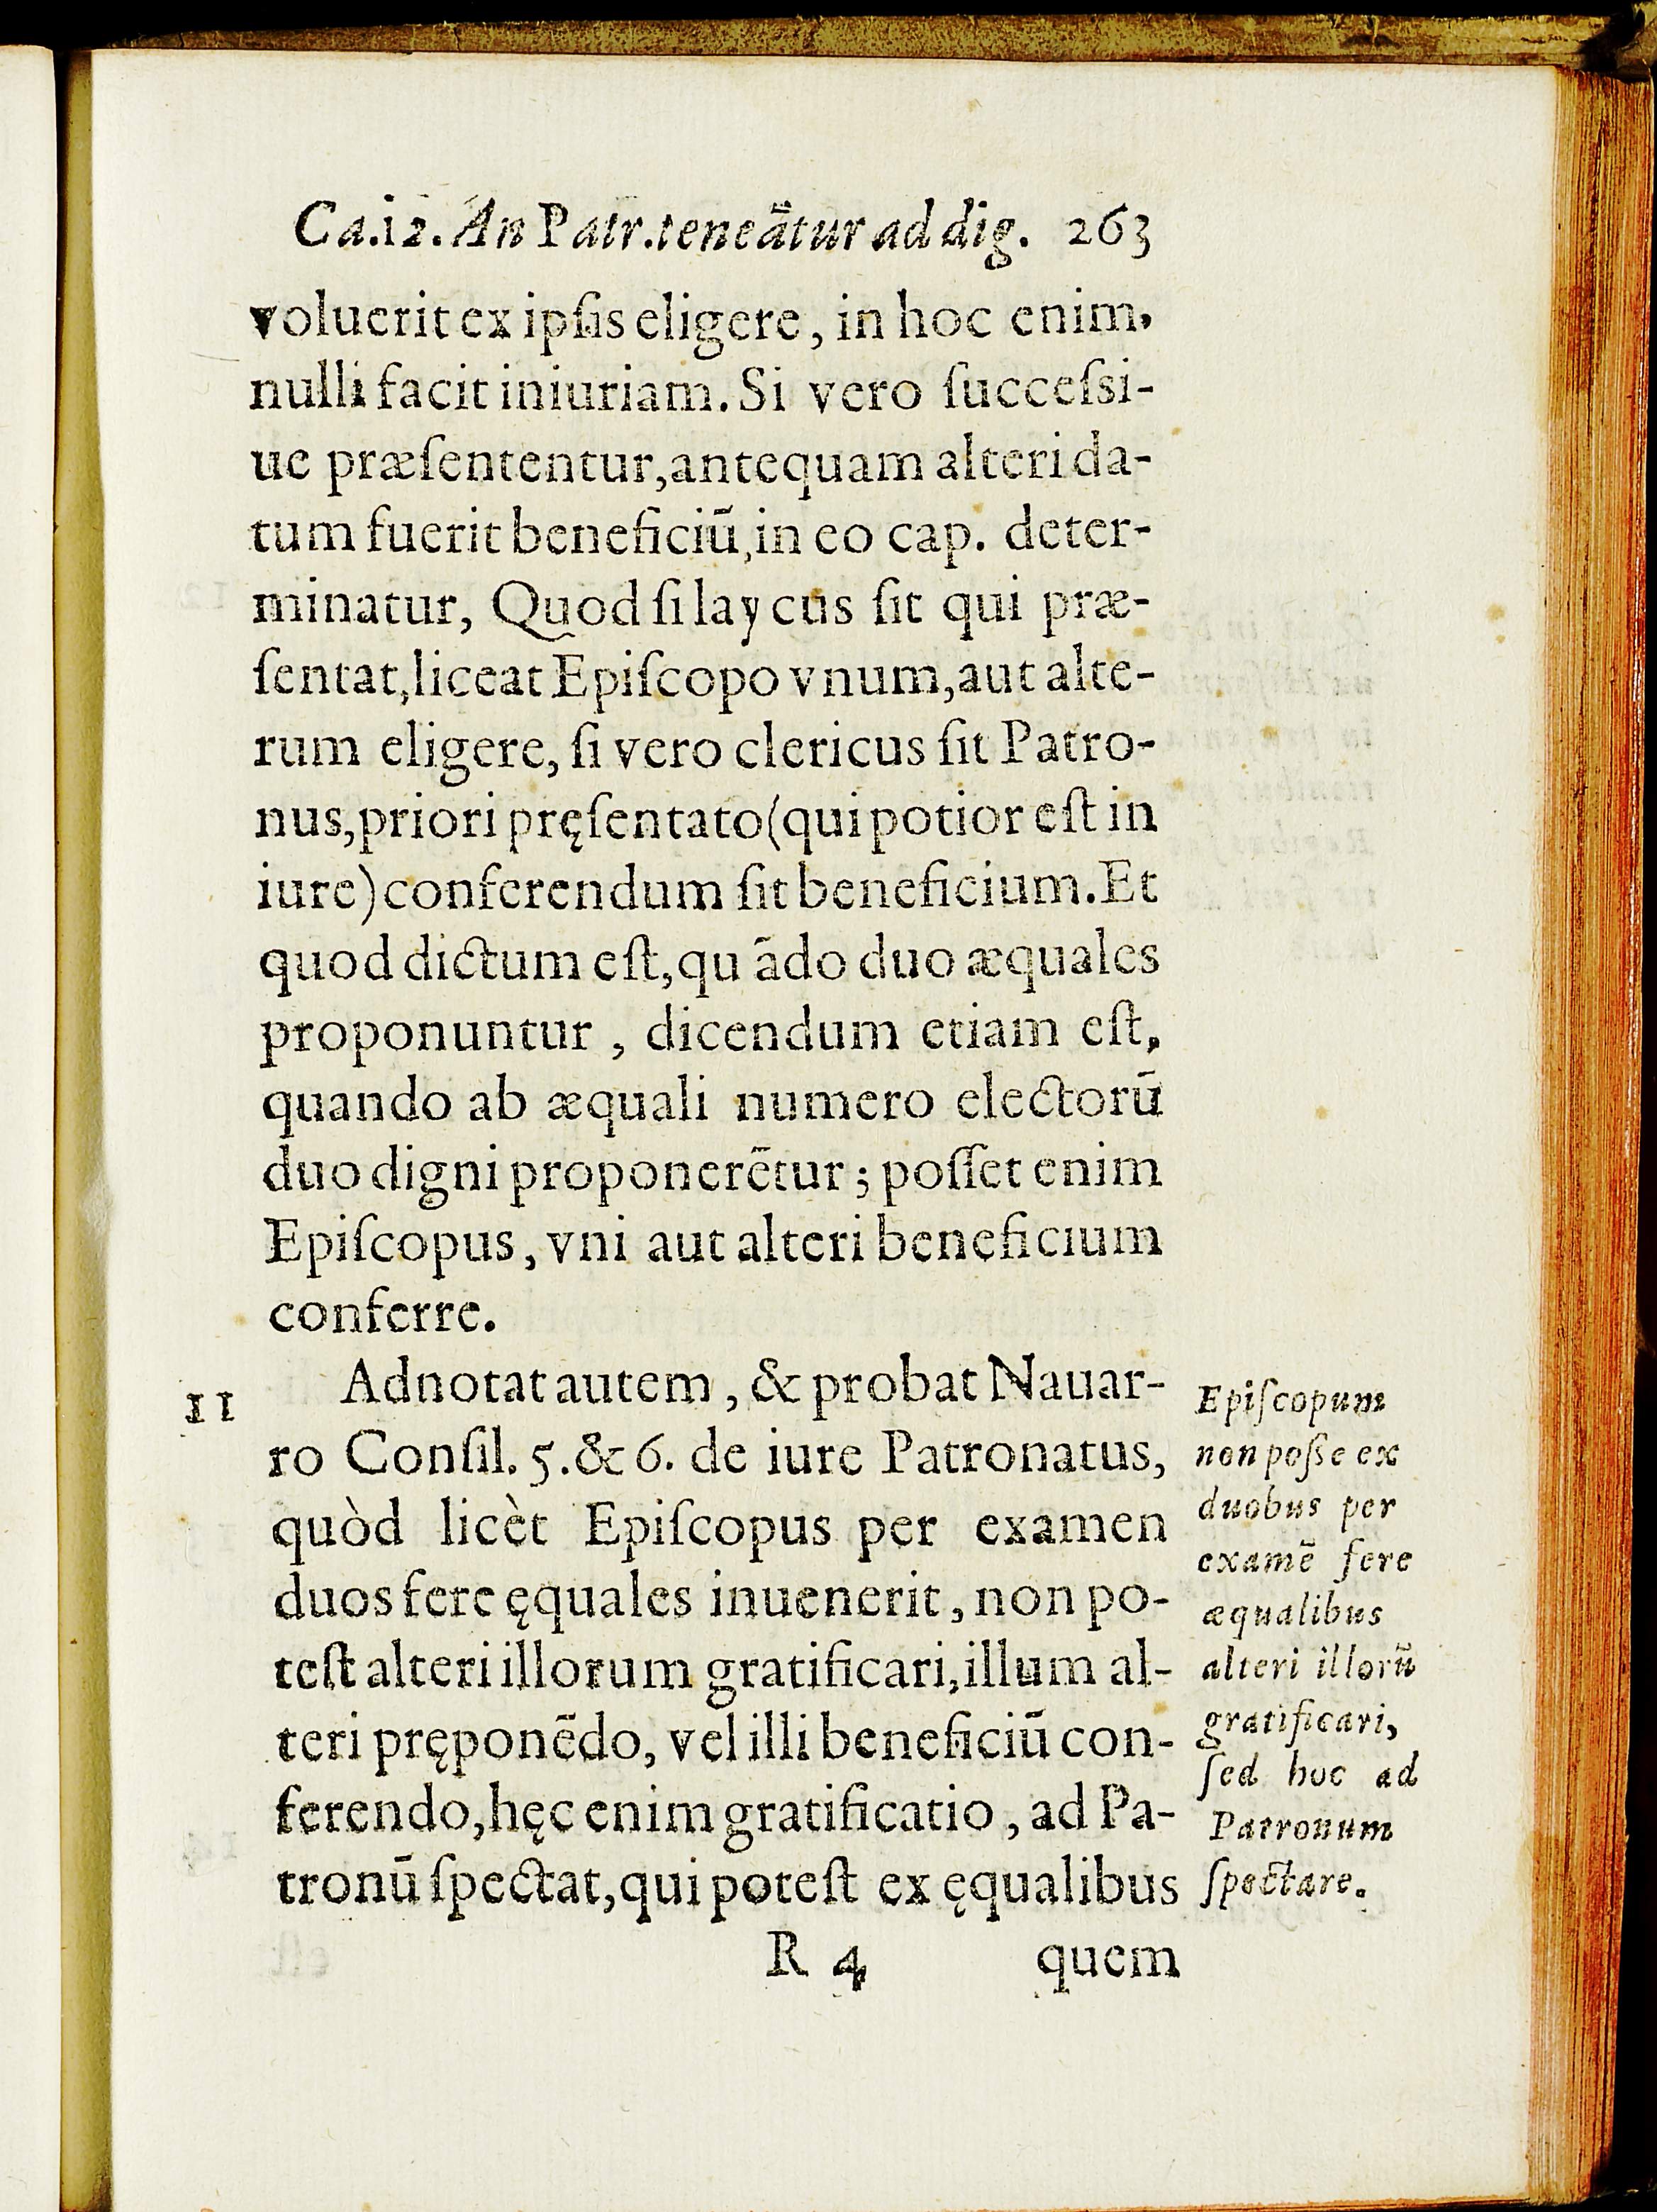 Ca.i2. An Patr. teneãtur ad dig. 263
voluerit ex ipſis eligere, in hoc enim,
nulli facit iniuriam. Si vero ſucceſsi-
ue præſententur, antequam alteri da-
tum fuerit beneficiũ, in eo cap. deter-
minatur, Quod ſi laycus ſit qui præ-
ſentat, liceat Epiſcopo vnum, aut alte-
rum eligere, ſi vero clericus ſit Patro-
nus, priori pręſentato (qui potior eſt in
iure) conferendum ſit beneficium. Et
quod dictum eſt, quãdo duo æquales
proponuntur, dicendum etiam eſt,
quando ab æquali numero electorũ
duo digni proponerẽtur; poſſet enim
Epiſcopus, vni aut alteri beneficium
conferre.
11 Adnotat autem, & probat Nauar-
ro Conſil. 5. & 6. de iure Patronatus,
quòd licèt Epiſcopus per examen
duos fere ęquales inuenerit, non po-
teſt alteri illorum gratificari, illum al-
teri pręponẽdo, vel illi beneficiũ con-
ferendo, hęc enim gratificatio, ad Pa-
tronũ ſpectat, qui poteſt ex ęqualibus
Epiſcopum
non poſſe ex
duobus per
examẽ fere
æqualibus
alteri illorũ
gratificari,
ſed hoc ad
Patronum
ſpectare.
R 4 quem